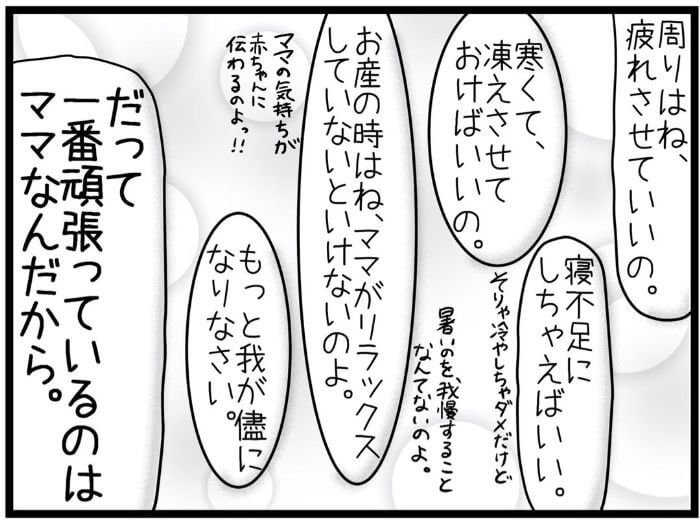 周りはね、
疲れさせていいの。
寒くて、
凍えさせて
おけばいいの。
寝不足に
しちゃえばいい。
そりゃ冷やしちゃダメだけど
暑いのを、我慢すること
なんてないのよ。
お産の時はね、ママがリラックス
していないといけないのよ。
ママの気持ちが
赤ちゃんに
伝わるのよっ!!
もっと我が儘に
なりなさい。
だって
一番頑張っているのは
ママなんだから。